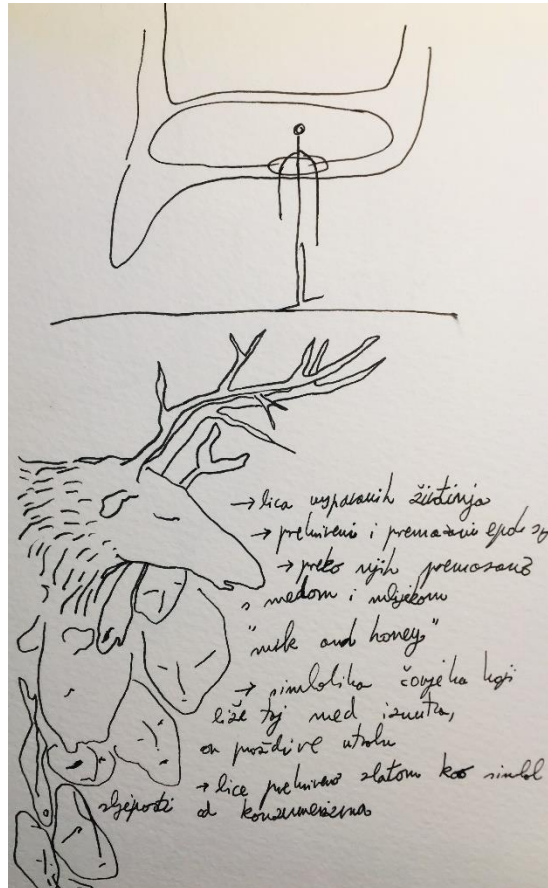 → lica usparanih životinja
→ prekriveni i premazani
→ preko njih premazano
s medom i mlijekom
"milk and honey"
→ simbolika čovjeka koji
liže taj med iznutra,
on proždire utrobu
→ lice prekriveno zlatom kao simbol
sljeposti od konzumerizma